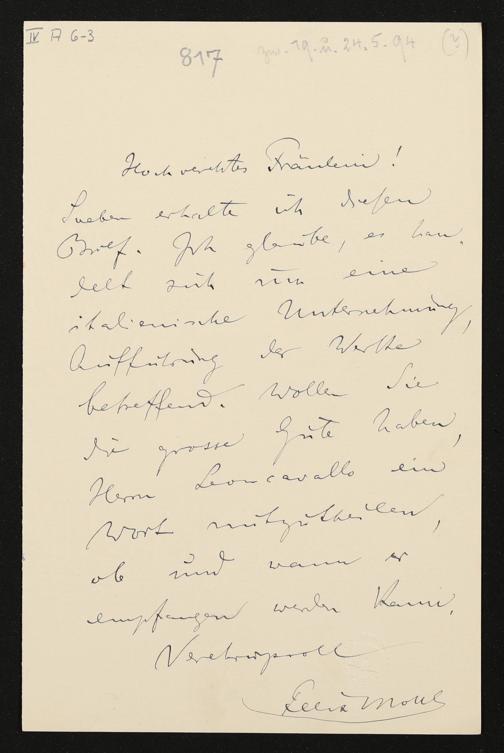 IV A 6-3
817
zw. 19. u. 24.5.94
(2)
Hochverehrtes Fräulein!
Soeben erhalte ich diesen
Brief. Ich glaube, es han-
delt sich um eine
italienische Unternehmung,
Aufführung der Werke
betreffend. Wollen Sie
die grosse Güte haben,
Herrn Leoncavallo ein
Wort mitzutheilen,
ob und wann er
empfangen werden kann.
Verehrungsvoll
Felix Mottl